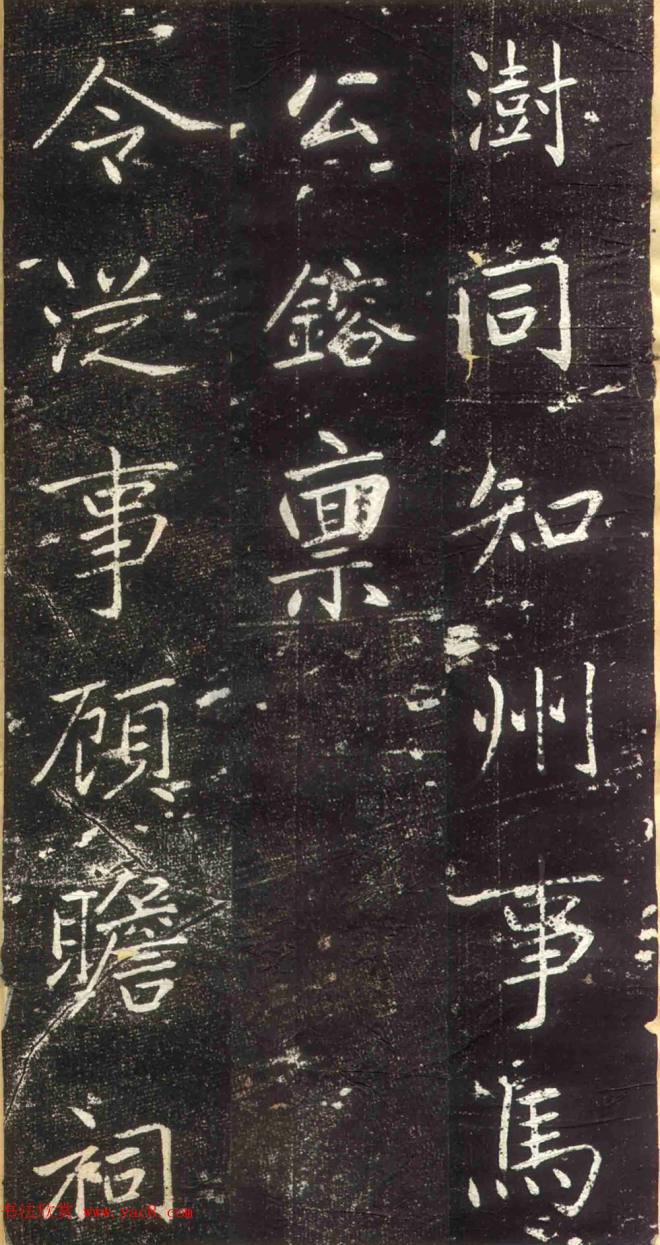 澍同知州事馬
公鎔禀
令从事顧瞻祠
书法欣赏 www.yac8.com